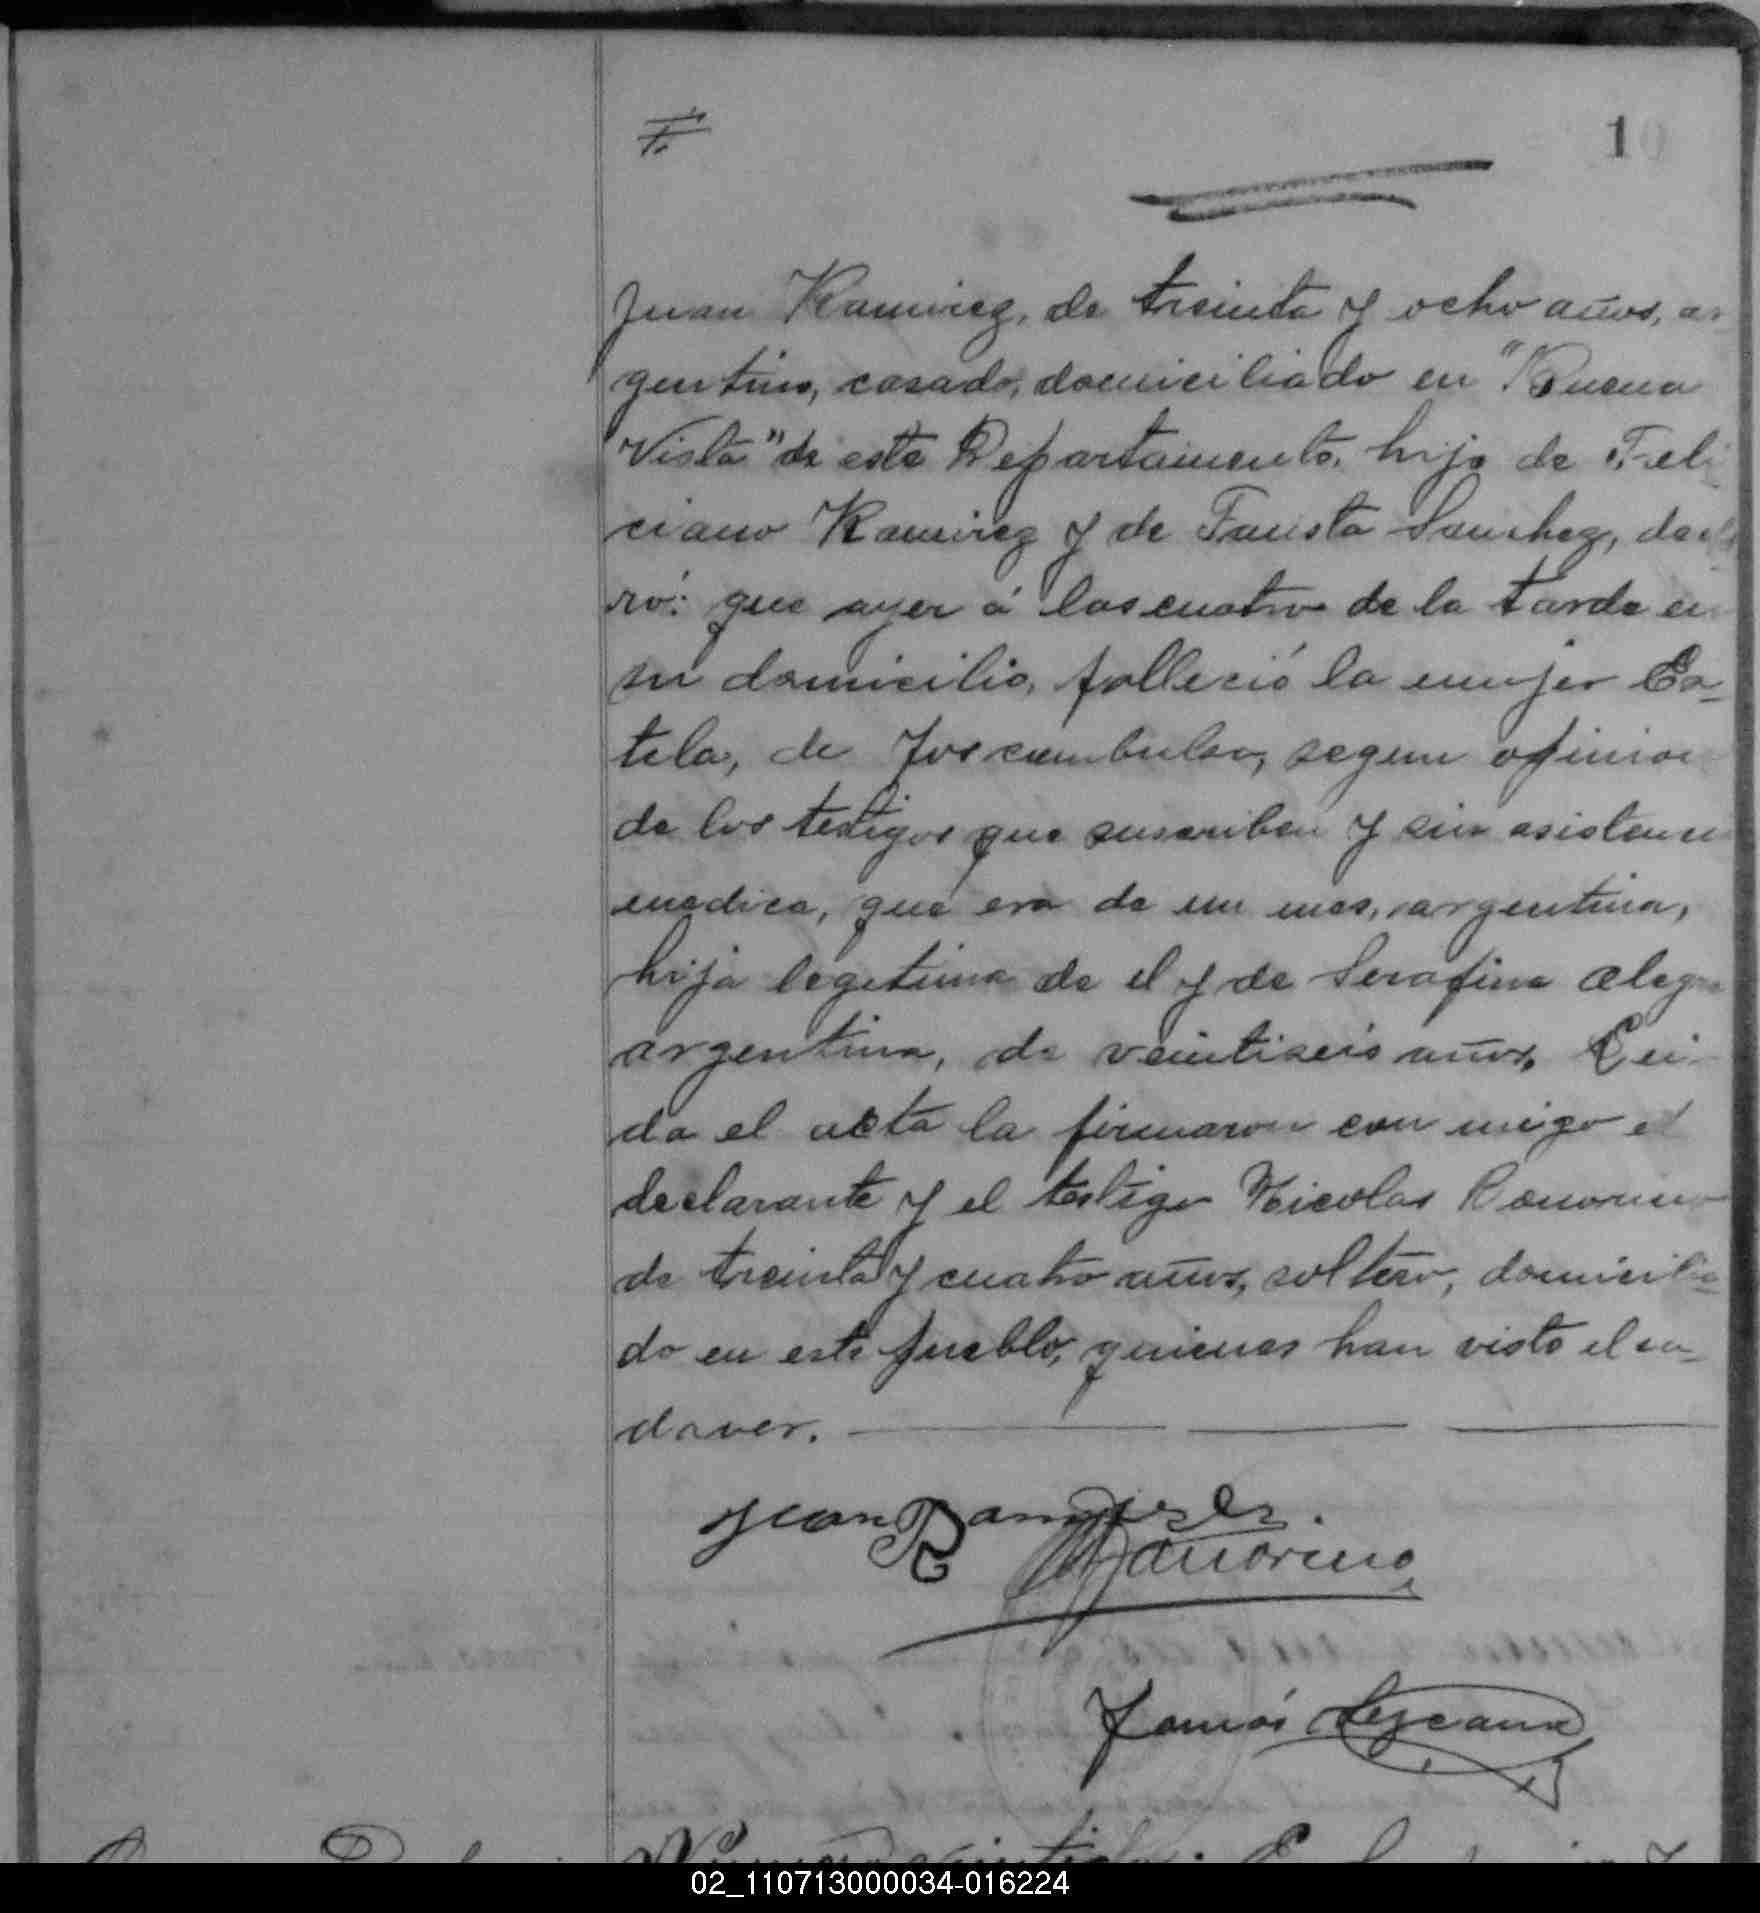 10
Juan Ramirez, de treinta y ocho años, ar
gentino, casado, domiciliado en "Buena
Vista" de este Departamento, hijo de Feli
ciano Ramirez y de Fausta Sanchez, decla
ró: que ayer á las cuatro de la tarde en
su domicilio, falleció la mujer
tela, de segun opinion
de los testigos que suscriben y sin asistencia
medica, que era de un mes, argentina,
hija legitima de el y de Serafina Alegre
argentina, de veintiseis años. Lei-
da el acta la firmaron con migo el
declarante y el testigo Nicolas
de treinta y cuatro años, soltero, domicilia
do en este pueblo, quienes han visto el ca-
daver.
Juan Ramires
Tomás
02_110713000034-016224